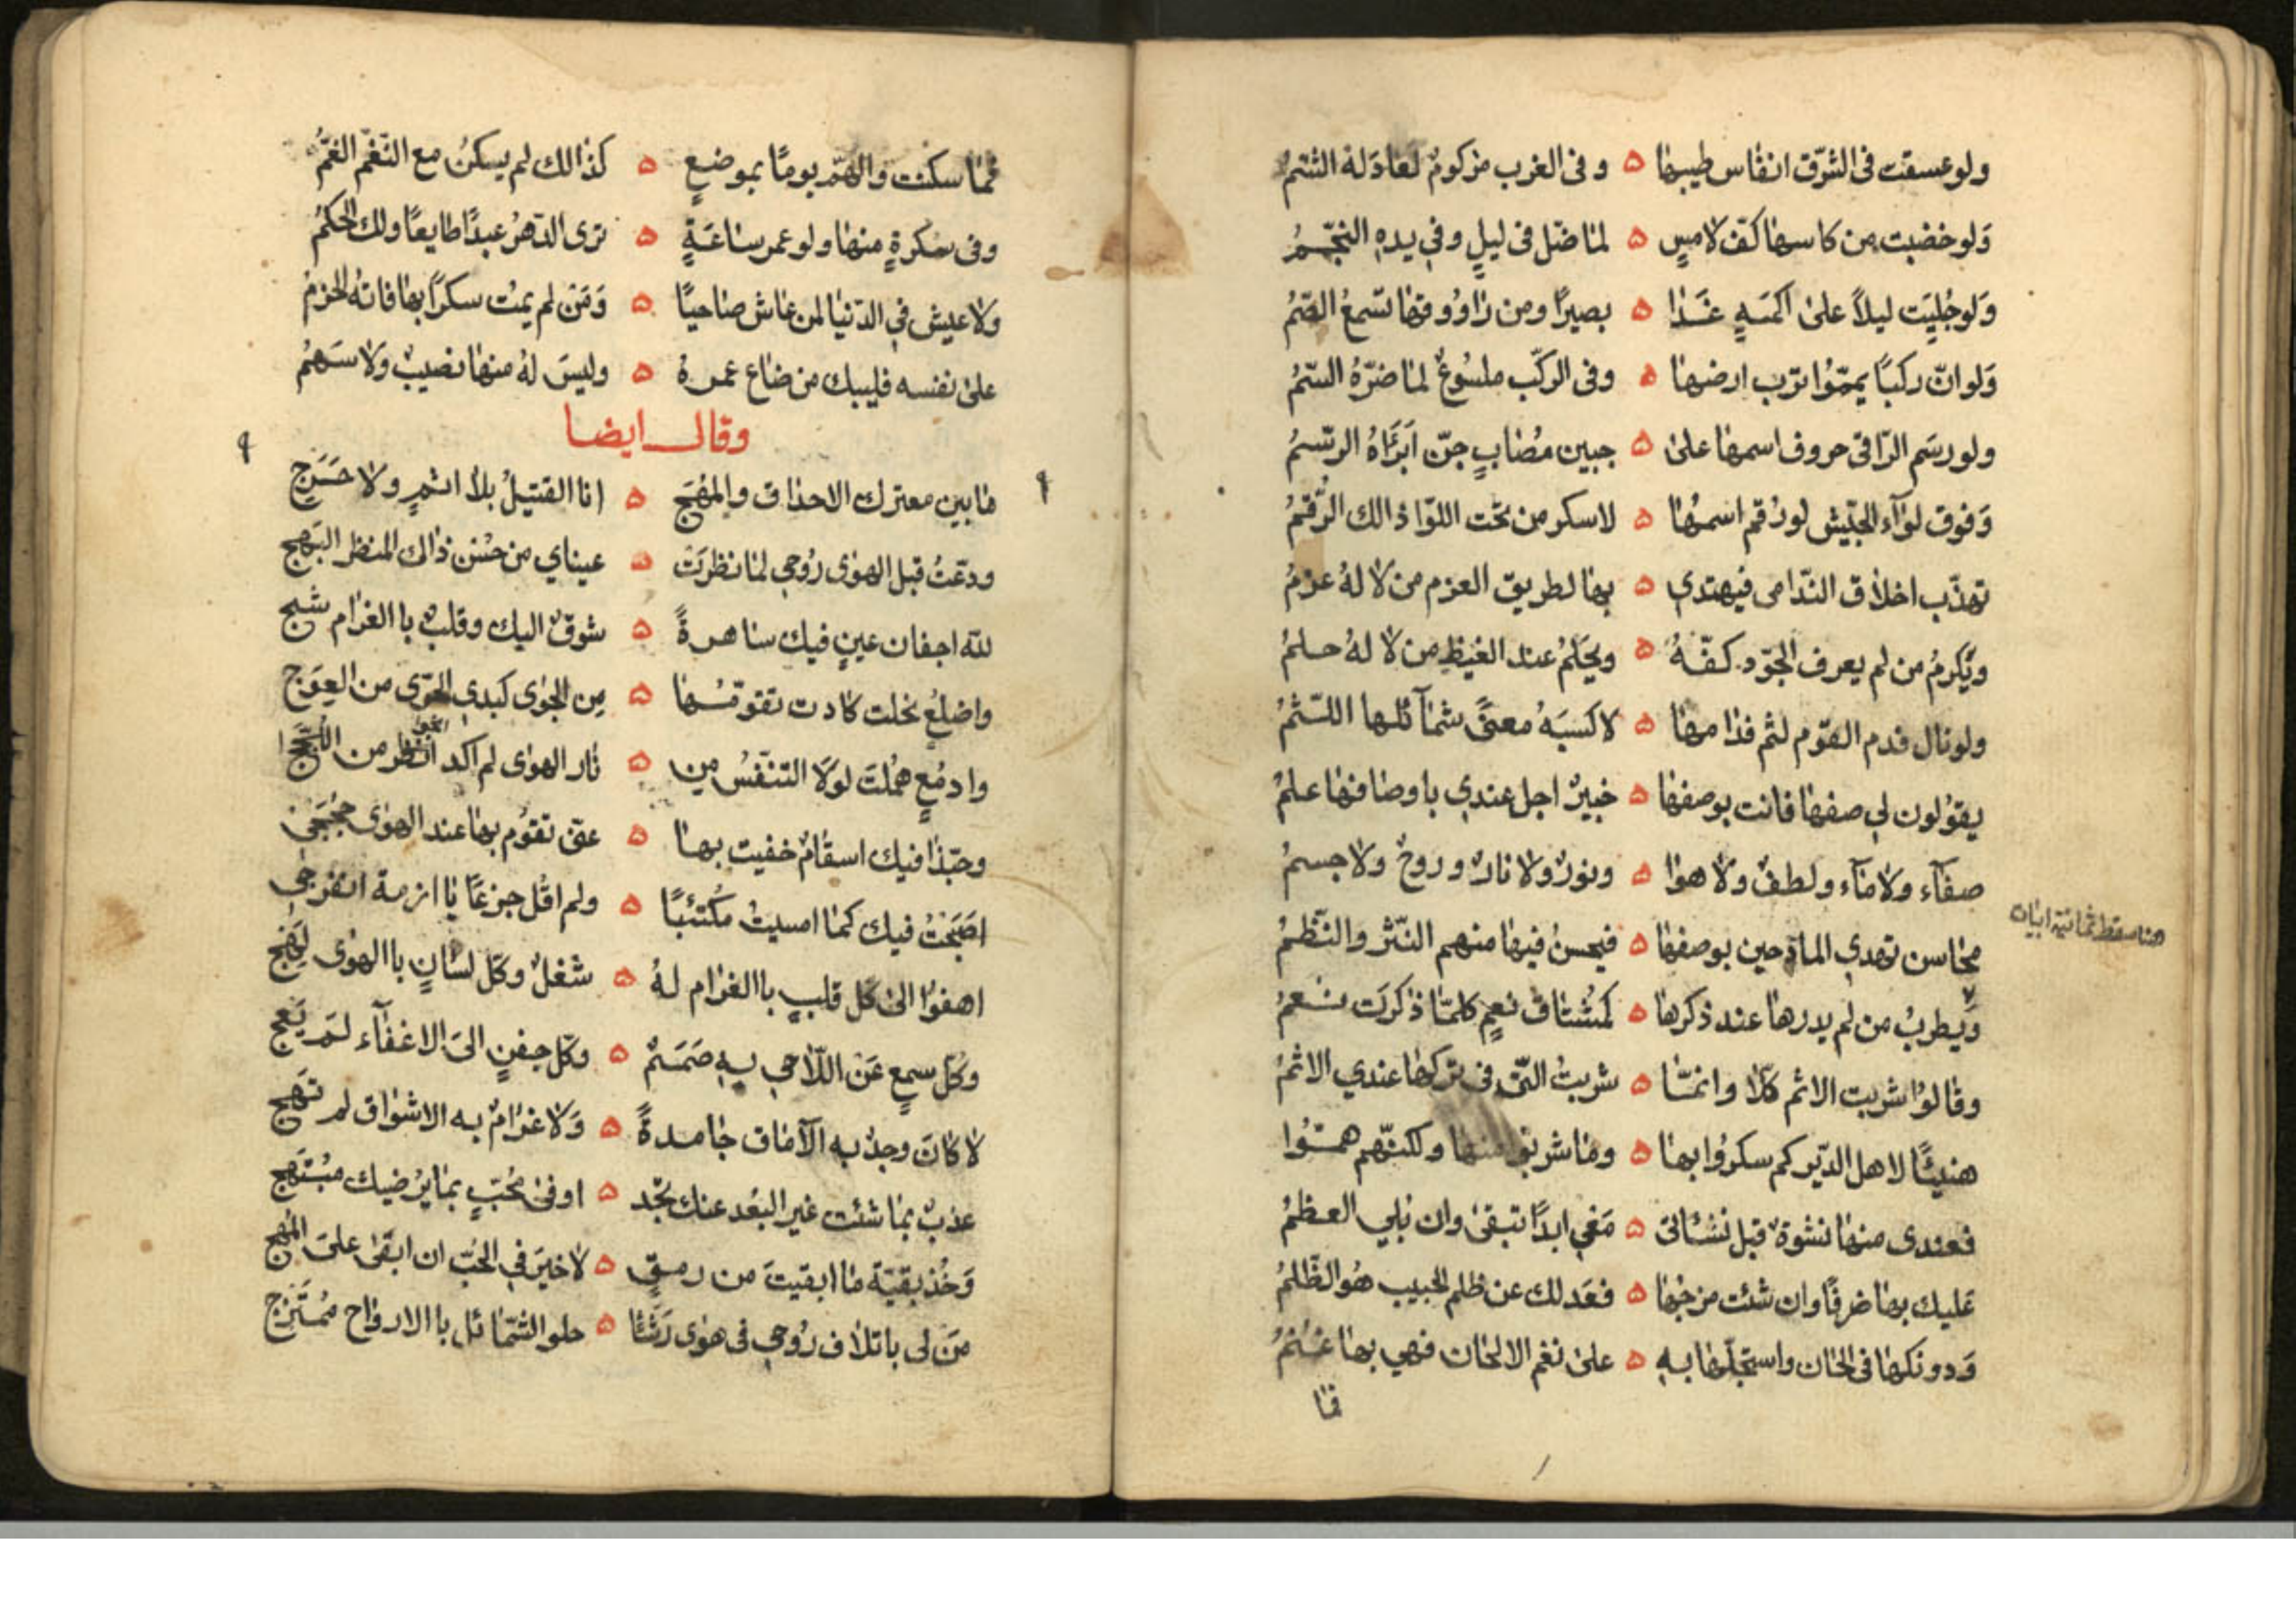 ولو عبسقت فى الشّرق انفاس طيبها ه وفى الغرب مزكومٌ لعادَ له الشّمُ
وَلو خضبت من كاسها كفّ لامسٍ ه لما ضّل فى ليلٍ وفي يدهِ النجّمُ
وَلو جُليَت ليلاً على اكمَهٍ غَدَا ه بصيرًا ومن راوُوقها تسمعُ الصّمُ
وَلو انّ ركبًا يمّموُا ترّب ارضها ه وفى الركّب ملسُوعٌ لما ضرّهُ السّمُ
ولو رسَم الرّاقى حروف اسمها على ه جبين مصُابٍ جنّ اَبَرَاهُ الرسّمُ
وَفوق لوَآء الجّيش لو رُقم اسمهُا ه لاسكر من تحت اللوّا ذالك الرّقمُ
تهذّب اخلاق النّدامى فيهتدي ه بها لطريق العزم من لا لهُ عزمُ
ويَكرمُ من لم يعرف الجوّد كفّهُ ه ويحَلمُ عند الغيظِ من لا لهُ حلمُ
ولو نال فدم القوّم لثم فدامها ه لاكسبَهُ معنىً شمآئلها اللّثمُ
يقوُلون لي صفها فانت بوصفها ه خبيرٌ اجل عندي باوصافها علمُ
صفآء ولا مآء ولطفٌ ولا هوا ه ونورٌ ولا نارٌ وروحٌ ولا جسمُ
هنا سقط ثمانية ابيات
محاسن تهدي المادحين بوصفها ه فيحسنُ فيها منهم النّثر والنّظمُ
وَيطربُ من لم يدرها عند ذكرها ه كمشُتاق نعمٍ كلمّا ذكرَت نعمُ
وقالوُا شربت الاثم كلّا وانمّا ه شربتُ التّى فى تركها عندي الاثمُ
هنيئًا لاهل الديّر كم سكروُا بها ه وما شربوا منها ولكنّهم همّوُا
فعندى منها نشوةٌ قبل نشئاتى ه مَعي ابدًا تبقى وان بُلي العظمُ
عَليك بها صرفًا وان شئت مزجُها ه فعَدلك عن ظلم الحبيب هوُ الظّلمُ
وَدونكها فى الحان واستجلّها بهِ ه على نغم الالحان فهي بها غنُمُ
فما
فما سكنت والهّم يومًا بموضعٍ ه كذالك لم يسكنُ مع النّغم الغمُّ
وفى سكرةٍ منها ولو عمر ساعَةٍ ه ترى الدّهرُ عبدًا طايعًا ولك الحكمُ
ولا عيش في الدّنيا لمن عاش صاحيًا ه وَمَن لم يمُت سكرًا بها فاتهُ الحزمُ
على نفسه فليبك من ضاع عمرهُ ه وليسَ لهُ منها نصيبٌ ولا سَهمُ
وقال ايضا
ما بين معترك الاحداق والمهَج ه انا القتيلُ بلا اثمٍ ولا حَرَجِ
ودعّتُ قبل الهوى رُوحي لما نظرَتْ ه عيناي من حسُن ذاك المنظر البَهج
لله اجفان عينٍ فيك ساهرةً ه شوقٌ اليك وقلبٌ باالغرام شج
واضلعٍ نحلت كادت تقوّمُها ه مِن الجوى كبدي الحرّى من العِوَج
وادمُعٍ همُلتَ لولَا التنفّسُ مِن ه نار الهوى لم اكد من اللُجَج
وحبّذا فيك اسقامٌ خفيت بها ه عنّى تقوُم بها عند الهوى حُجَجي
اصَبَحتُ فيك كما امسيتُ مكُتئبًا ه ولم اقُل جزعًا يا ازمة انفرجي
اهفوُا الى كل قلبٍ باالغرام لهُ ه شغلٌ وكل لسانٍ باالهوى لهَج
وكلُ سمعٍ عَن اللّاحي بهِ صَمَمٌ ه وكل جفنٍ الىَ الاغفآء لم يَعج
لا كانَ وجدٌ به الآماق جامدةً ه وَلا غرامٌ به الاشواق لم تهَج
عذبْ بما شئت غير البعُد عنك تجد ه اوفى محُبّ بما يرُضيك مبُتهَج
وَخُذ بقيّة ما ابقيتَ من رمقٍ ه لا خيَر في الحُبّ ان ابقى علىَ المهُج
مَن لى باتلاف رُوحي فى هوى رَشَأ ه حلو الشمّائل باالارواح ممُتَزج